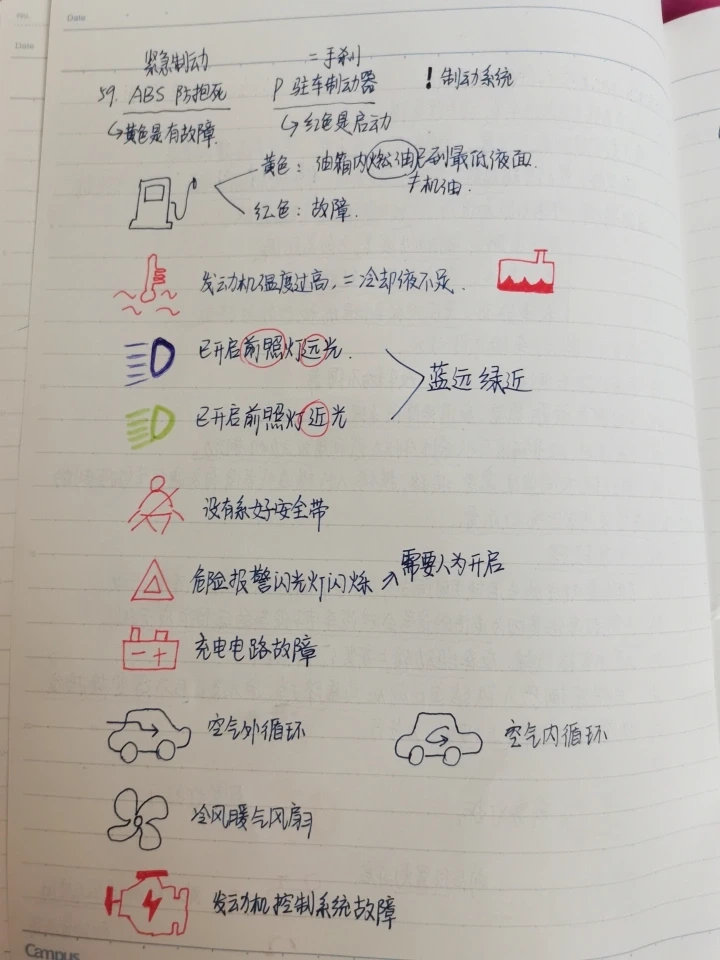 No.
Date
Date
紧急制动
=手刹
59. ABS 防抱死 P 驻车制动器 ! 制动系统
↳黄色是有故障.
↳红色是启动
黄色: 油箱内燃油已到最低液面.
≠机油.
红色: 故障.
发动机温度过高. =冷却液不足.
已开启前照灯远光.
蓝远绿近
已开启前照灯近光
没有系好安全带
危险报警闪光灯闪烁 → 需要人为开启
- +
充电电路故障
空气外循环 空气内循环
冷风暖气风扇
发动机控制系统故障
Campus